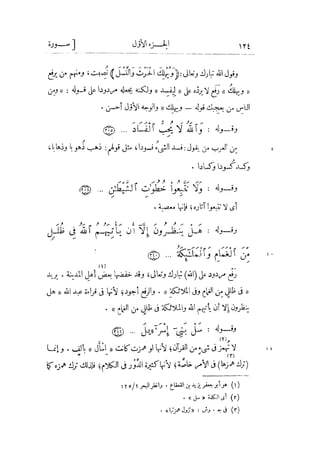 ١٢٤ الجـــزء الأوّل [ ســـورة
وقول الله تبارك وتعالى : ﴿ وَيُهْلِكَ الْحَرْثَ وَالنَّسْلَ ﴾ نُصبت ، ومنهم من يرفع
« ويهلك » رَفَع لا يردّه على « ليُفسِد » ولكنه يجعله مردودا على قـوله : « ومن
الناس من يعجبك قوله – ويهلك » والوجه الأوّل أحسن .
وقــوله : وَاللَّهُ لَا يُحِبُّ الْفَسَادَ ... (٢٠٥)
٥ من العرب من يقول : فسد الشيء فسودا ، مثل قولهم : ذهب ذُهوبا وذهابا ،
وكسد كسودا وكسادا .
وقــوله : وَلَا تَتَّبِعُوا خُطُوَاتِ الشَّيْطَانِ ... (٢٠٨)
أى لا تتبعوا آثاره ؛ فإنها معصية .
وقــوله : هَلْ يَنظُرُونَ إِلَّا أَن يَأْتِيَهُمُ اللَّهُ فِي ظُلَلٍ
١٠ مِّنَ الْغَمَامِ وَالْمَلَائِكَةُ ... (٢١٠)
رَفْع مردود على ( الله ) تبارك وتعالى ، وقد خفضها بعض أهل المدينة (١) . يريد
« فى ظلل من الغمام وفى الملائكة » . والرفع أجود ؛ لأنها فى قراءة عبد الله « هل
ينظرون إلا أن يأتيهم الله والملائكة فى ظلل من الغمام » .
وقــوله : سَلْ بَنِي إِسْرَائِيلَ ... (٢١١)
١٥ لا تهمز (٢) فى شىء من القرآن ؛ لأنها لو همزت كانت « اِسْأل » بألِف . وإنمـا
( ترك همزها ) (٣) فى الأمر خاصَّة ؛ لأنها كثيرة الدَّوْر فى الكلام ؛ فلذلك ترك همزه كما
(١) هو أبو جعفر يزيد بن القعقاع . وانظر البحر ٢/١٢٥
(٢) أى الكلمة « سل » .
(٣) فى ج . وش : « تزول همزتها » .